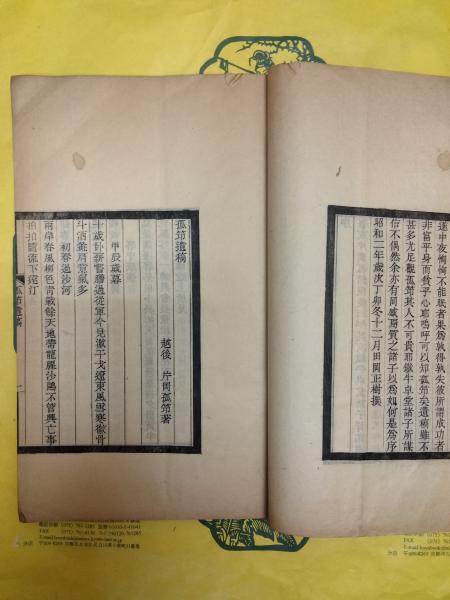 途中夜悔悔不能眠者果爲孰得孰失彼所謂成功者
非富乎身而貧乎心耶嗚呼可以知孤笻矣遺稿雖不
甚多尤足觀孤笻其人不可貴耶鐵牛卓堂諸子所謀
信不偶然余亦有同感焉質之諸子以爲如何是爲序
昭和二年歲次丁卯冬十二月田岡正樹撰
孤笻遺稿
越後 片岡孤笻著
甲辰歲暮
十歲臥薪嘗膽過從軍今見激干戈遼東風雪寒徹骨
斗酒
初春過沙河
兩岸春風柳色靑戰餘天地帶龍腥沙鷗不管興亡事
拍拍隨流下遠汀
孤笻遺稿
一
E-mail
FAX